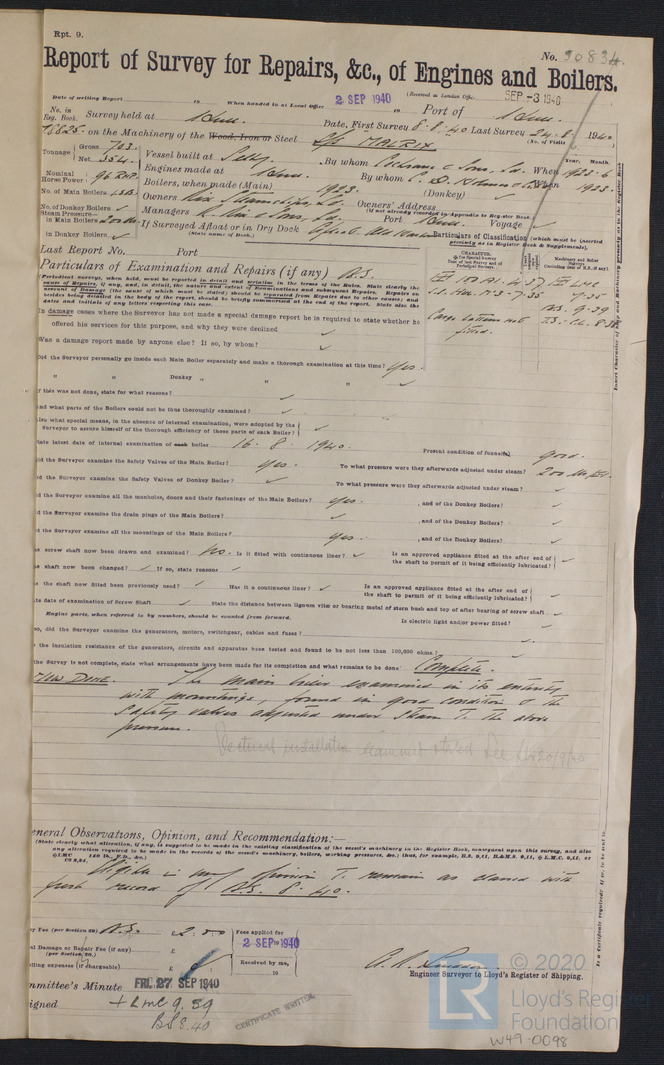 Rpt. 9.
No. 50834.
Report of Survey for Repairs, &c., of Engines and Boilers.
Date of writing Report 19 When handed in at Local Office 2 SEP 1940 19 (Received at London Office SEP -3 1940
No. in Reg. Book. Survey held at Hull Port of Hull
Date, First Survey 8.8.40 Last Survey 24.8. 1940
(No. of Visits
on the Machinery of the Wood, Iron or Steel S/S MALRIX
Tonnage Gross 703. Net 354.
Vessel built at Selby. By whom Cochrane & Sons, Ld. When Year. Month. 1923-6
Engines made at Hull By whom C. D. Holmes & When 1923.
Nominal Horse Power 96 RHP.
Boilers, when made (Main) 1923. (Donkey)
No. of Main Boilers 1 SB.
Owners Rix Steamships, Ld. Owners' Address
(if not already recorded in Appendix to Register Book)
No. of Donkey Boilers
Managers R. Rix & Sons, Ld. Port Hull Voyage
Steam Pressure— in Main Boilers 200 lbs
If Surveyed Afloat or in Dry Dock Afloat.
(State name of Dock.)
in Donkey Boilers
Particulars of Classification (which must be inserted precisely as in Register Book & Supplements).
Last Report No. Port
Particulars of Examination and Repairs (if any) B.S.
100 A1. 4.37 LMC
7.35
S.S. Hul. No. 3 - 7.35
BS. 9.39
Cargo battens not fitted.
TS. CL. 8.38
(Periodical surveys, when held, must be reported in detail and seriatim in the terms of the Rules. State clearly the
In damage cases where the Surveyor has not made a special damage report he is required to state whether he
offered his services for this purpose, and why they were declined
Was a damage report made by anyone else? If so, by whom?
Did the Surveyor personally go inside each Main Boiler separately and make a thorough examination at this time? Yes.
" " Donkey " " "
If this was not done, state for what reasons?
And what parts of the Boilers could not be thus thoroughly examined?
Also what special means, in the absence of internal examination, were adopted by the
Surveyor to assure himself of the thorough efficiency of those parts of each Boiler?
State latest date of internal examination of each boiler 16. 8. 1940. Present condition of funnel(s) good.
Did the Surveyor examine the Safety Valves of the Main Boiler? Yes. To what pressure were they afterwards adjusted under steam? 200 lbs
Did the Surveyor examine the Safety Valves of Donkey Boiler? To what pressure were they afterwards adjusted under steam?
Did the Surveyor examine all the manholes, doors and their fastenings of the Main Boilers? Yes. , and of the Donkey Boilers?
Did the Surveyor examine the drain plugs of the Main Boilers? , and of the Donkey Boilers?
Did the Surveyor examine all the mountings of the Main Boilers? Yes. , and of the Donkey Boilers?
Has screw shaft now been drawn and examined? No. Is it fitted with continuous liner? Is an approved appliance fitted at the after end of the shaft to permit of it being efficiently lubricated?
Has shaft now been changed? If so, state reasons
Has the shaft now fitted been previously used? Has it a continuous liner? Is an approved appliance fitted at the after end of the shaft to permit of it being efficiently lubricated?
State date of examination of Screw Shaft State the distance between lignum vitæ or bearing metal of stern bush and top of after bearing of screw shaft
Engine parts, when referred to by numbers, should be counted from forward. Is electric light and/or power fitted?
If so, did the Surveyor examine the generators, motors, switchgear, cables and fuses?
Is the insulation resistance of the generators, circuits and apparatus been tested and found to be not less than 100,000 ohms?
If the Survey is not complete, state what arrangements have been made for its completion and what remains to be done? Complete.
NOW DONE. The main boiler examined in its entirety
with mountings, found in good condition & the
safety valves adjusted under steam to the above
pressure.
Electrical installation examined & tested See 20/9/40
General Observations, Opinion, and Recommendation:—
(State clearly what alteration, if any, is suggested to be made in the existing classification of the vessel's machinery in the Register Book, consequent upon this survey, and also
any alteration required to be made in the records of the vessel's machinery, boilers, working pressures, &c.; thus, for example, B.S. 9,11, B.&M.S. 9,11, ✠ L.M.C. 9,11, or
Eligible in my opinion to remain as classed with
fresh record of B.S. 8.40.
Survey Fee (per Section 29) B.S. £2.0.0
Fees applied for 2 SEP 1940
Special Damage or Repair Fee (if any) £
(per Section 29.)
Travelling expenses (if chargeable) £
Received by me, 19
Engineer Surveyor to Lloyd's Register of Shipping.
Committee's Minute FRI. 27 SEP 1940
Assigned + LMC 9.39
BS 8.40
CERTIFICATE WRITTEN
© 2020
LR
Lloyd's Register
Foundation
W49-0098